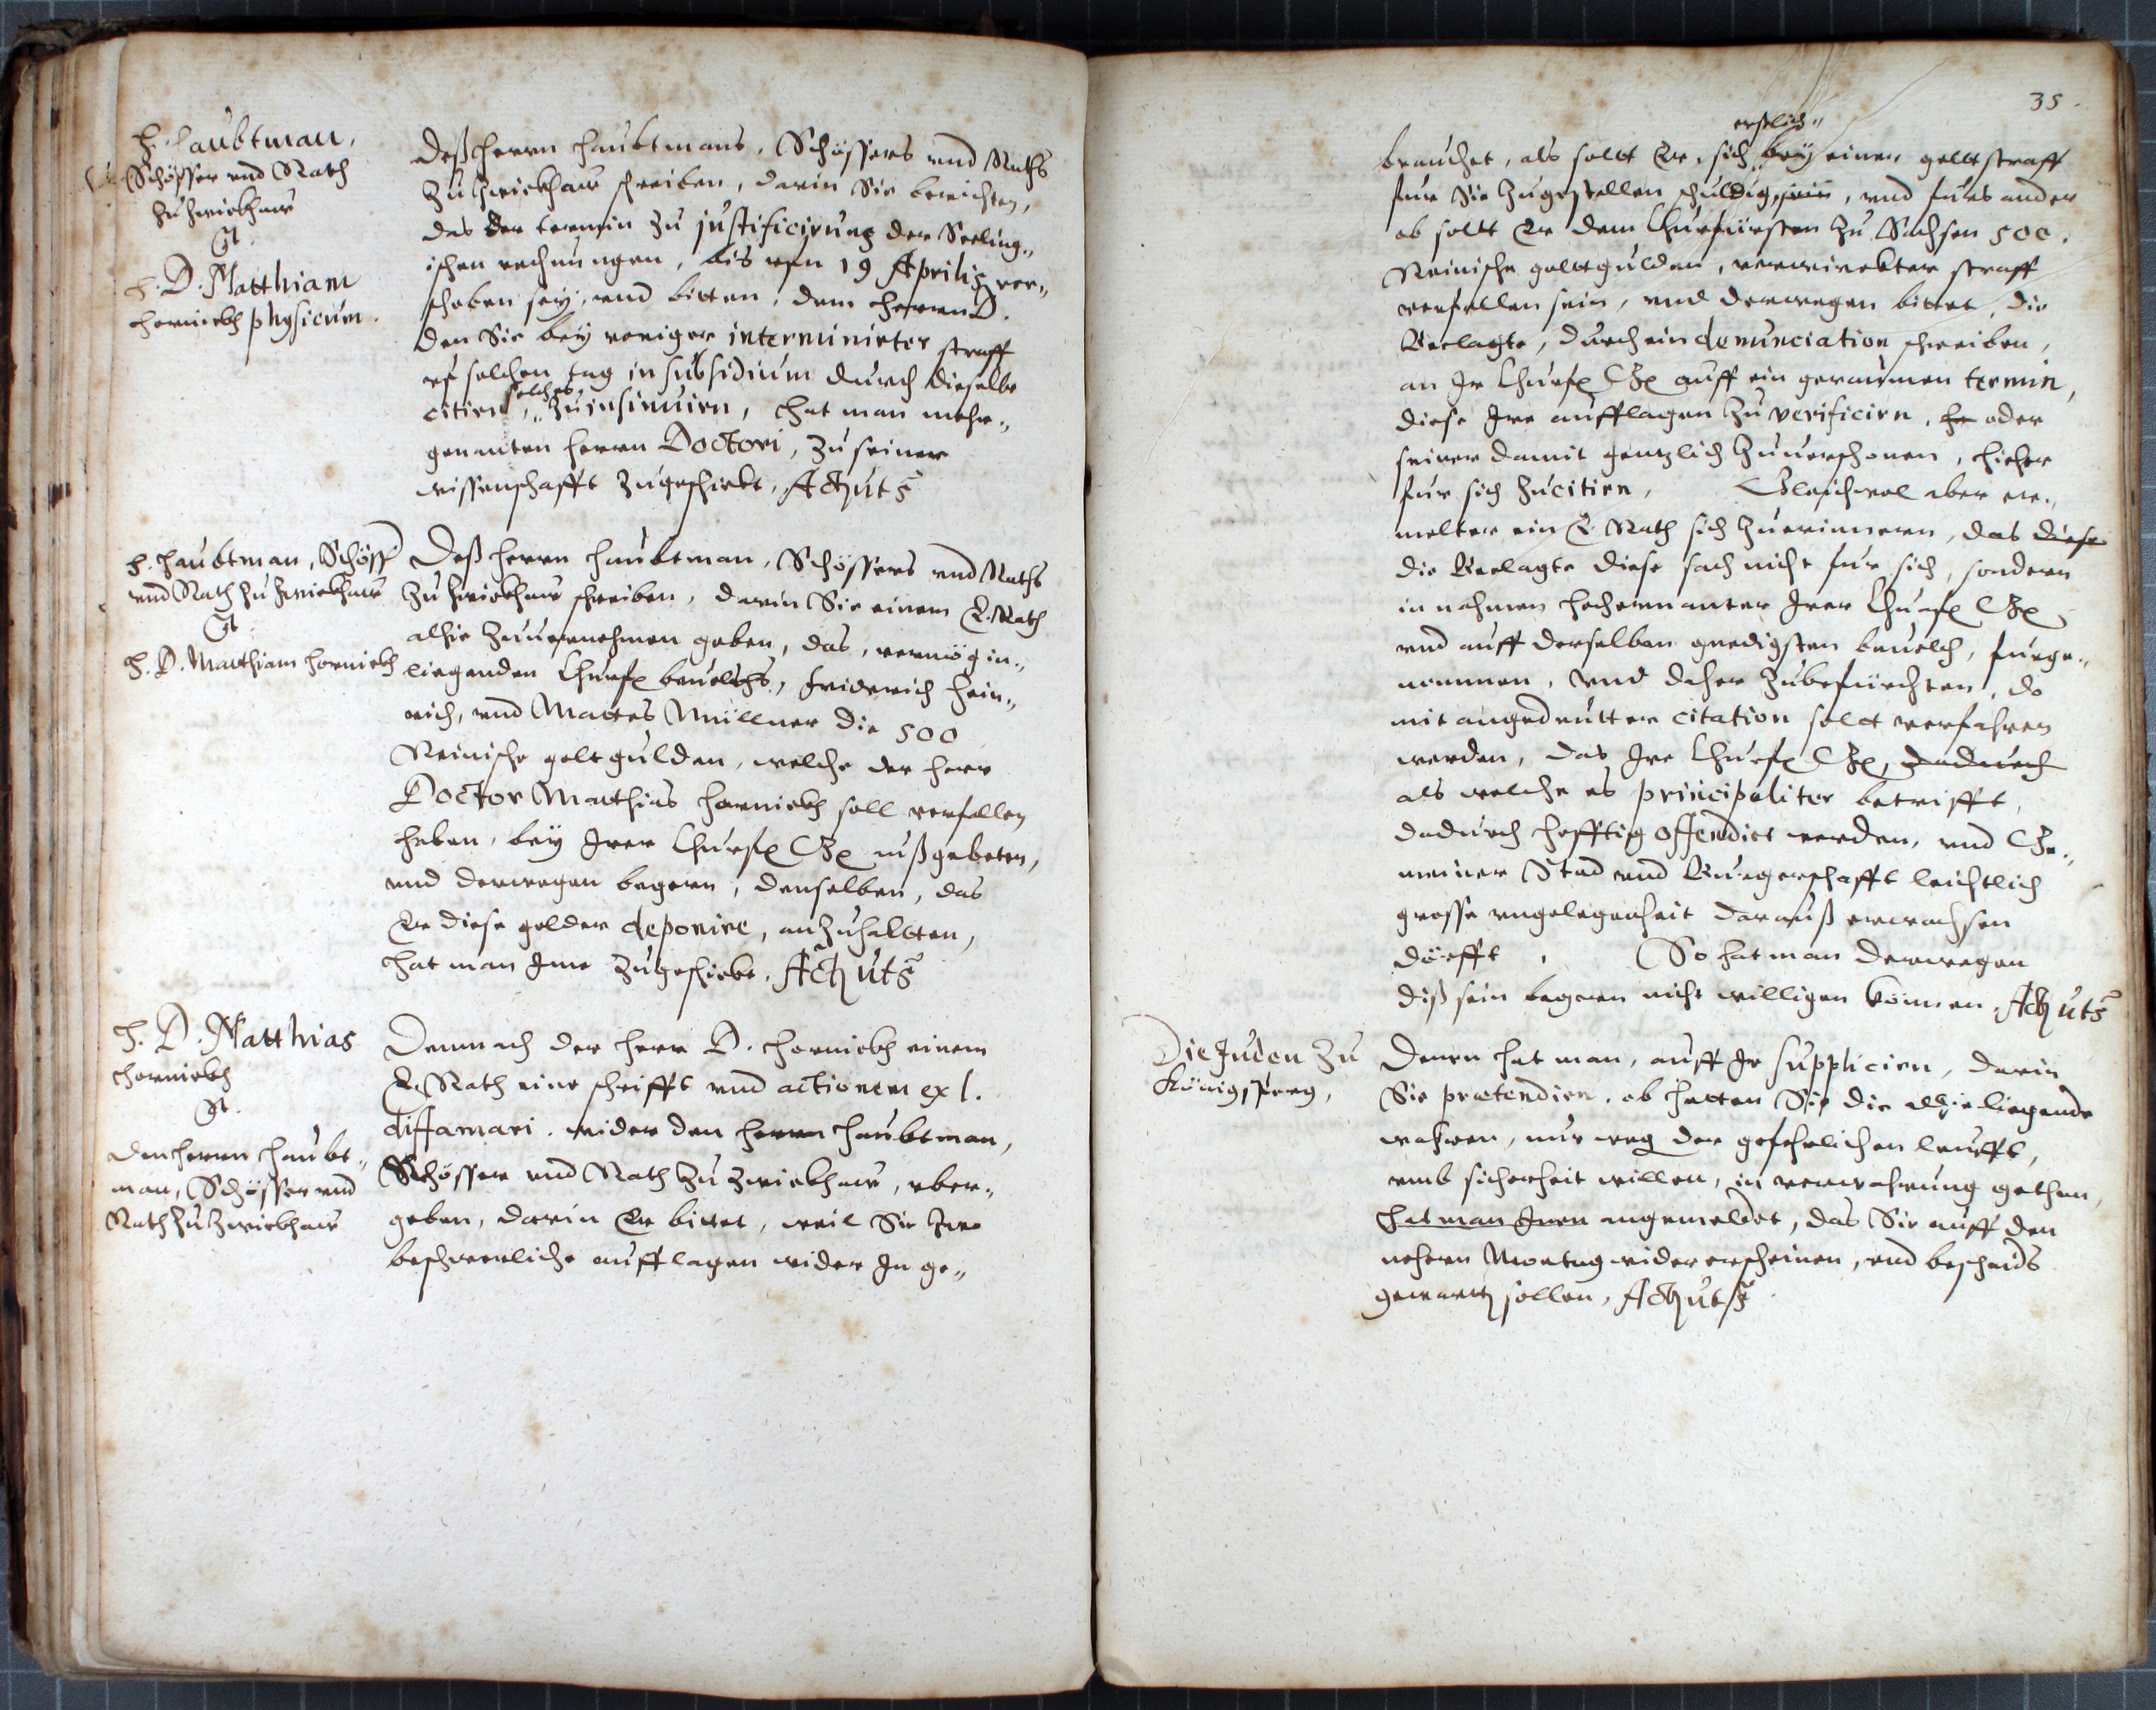 H. Haubtman,
Schösser vnd Rath
zu Zwickhaw
Ct.
H. D. Matthiam
Hornickh physicum.
Deß Herrn Haubtmans, Schössers vnd Raths
zu Zwickhaw schreiben, darin Sie berichten,
das der termin zu justificirung der Seeling„
ischen rechnungen, bis vfn 19 Aprilis ver„
schoben sey, vnd bitten, dem Herrn D.
den Sie bey voriger interminirter straff
vf solchen tag in subsidium durch dieselbe
citirn, solches zu insinuirn, Hat man mehr„
genanten Herrn Doctori, zu seiner
wissenschafft zugeschickt, Act ut s
H. Haubtman, Schöss
vnd Rath zu Zwickhaw
Ct.
H. D. Matthiam Hornickh
Deß Herrn Haubtman, Schössers vnd Raths
zu Zwickhaw schreiben, darin Sie einem E. Rath
alhie zuuernehmen geben, das, vermög in„
liegenden Churf beuelchs, Friderich Hein„
rich, vnd Mattes Müllner die 500
Reinische goltgulden, welche der Herr
Doctor Matthias Hornickh soll verfallen
haben, bey Irer Churf G außgebeten,
vnd derwegen begern, denselben, das
Er diese gelder deponire, anzuhaltten,
Hat man Ime zugeschickt, Act ut s
H. D. Matthias
Hornickh
Ct.
den Herrn Haubt„
man, Schösser vnd
Rath zu Zwickhaw
Demnach der Herr D. Hornickh einem
E. Rath eine schrifft vnd actionem ex l.
diffamari. wider den Herrn Haubtman,
Schösser vnd Rath zu Zwickhaw, vber„
geben, darin Er bittet, weil Sie Ire
beschwerliche aufflagen wider In ge„
35.
erstlich„
brauchet, als sollt Er, sich bey einer gelltstraff
fur Sie zugestellen schuldig sein, vnd furs ander
ob sollt Er dem Churfürsten zu Sachsen 500.
Reinische golttgulden, verwirckter straff
verfallen sein, vnd derwegen bittet, die
Beclagte, durch ein denunciation schreiben,
an Ir Churf G auff ein geraumen termin,
diese Ire aufflagen zu verificirn, he oder
seiner damit gentzlich zuuerschonen, hieher
fur sich zu citirn, Gleichwol aber er„
melter ein E Rath sich zuerinnern, das diese
die Beclagte diese sach nicht fur sich, sondern
in nahmen hochernanter Irer Churf G
vnd auff derselben gnedigsten beuelch, furge„
nommen, Vnd daher zubefürchten, do
mit angedeutter citation solt verfahren
werden, das Ire Churf G, dadurch
als welche es principaliter betrifft,
dadurch hefftig offendirt werden, vnd Ge„
meiner Stad vnd Burgerschafft leichtlich
grosse vngelegenheit darauß erwachsen
dörfft, So hat man derwegen
diß sein begern nicht willigen können, Act ut s
Die Juden zu
Königsperg,
Denen hat man, auff Ir supplicirn, darin
Sie prætendirn, ob hetten Sie die alhie liegende
wahren, nur weg der gefehrlichen leufft,
vmb sicherheit willen, in verwahrung gethan,
Hat man Inen angemeldet, das Sie auff den
nehern Montag wider erscheinen, vnd bescheids
gewart sollen, Act ut s